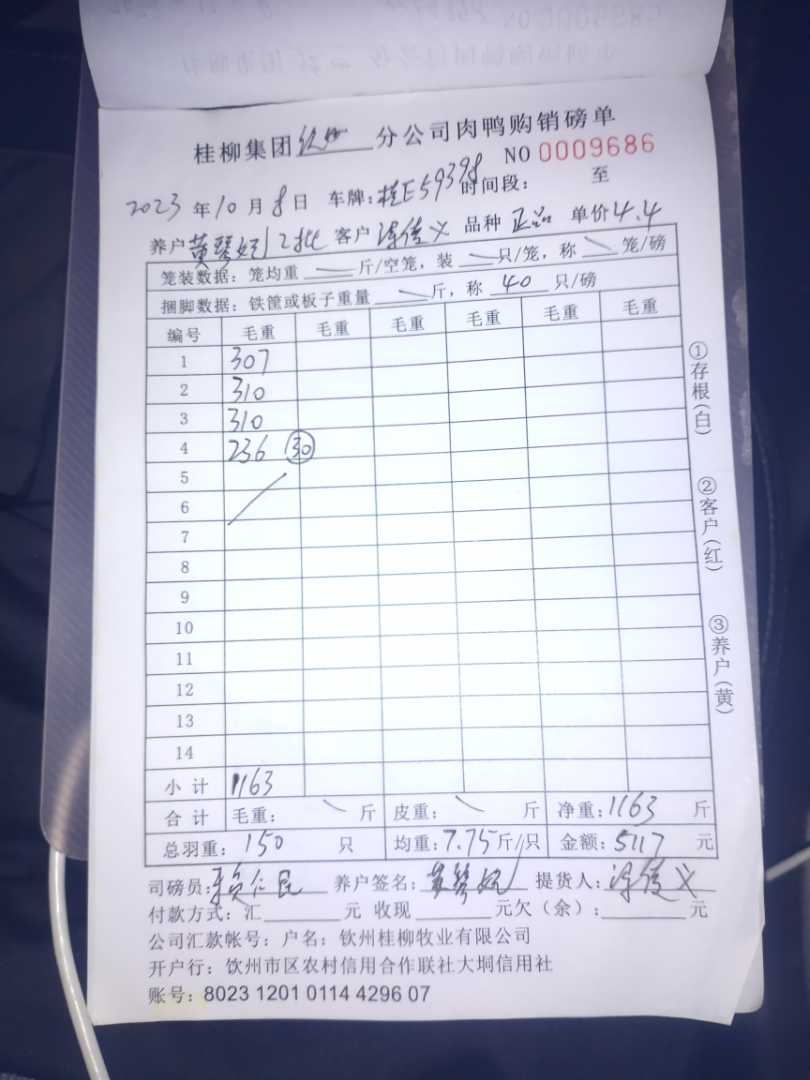 桂柳集团 钦州 分公司肉鸭购销磅单
NO 0009686
2023 年 10 月 8 日 车牌：桂E59398 时间段： 至
养户 黄琴 12批 客户 义 品种 正品 单价 4.4
笼装数据：笼均重 斤/空笼，装 只/笼，称 笼/磅
捆脚数据：铁筐或板子重量 斤，称 40 只/磅
编号 毛重 毛重 毛重 毛重 毛重 毛重
1 307
2 310
3 310
4 236 30
5
6
7
8
9
10
11
12
13
14
小 计 1163
合 计 毛重： 斤 皮重： 斤 净重：1163 斤
总羽重：150 只 均重：7.75斤/只 金额：5117 元
司磅员：仁民 养户签名：黄琴 提货人：义
付款方式：汇 元 收现 元欠（余）： 元
公司汇款帐号：户名：钦州桂柳牧业有限公司
开户行：饮州市区农村信用合作联社大垌信用社
账号：8023 1201 0114 4296 07
①存根(白)
②客户(红)
③养户(黄)